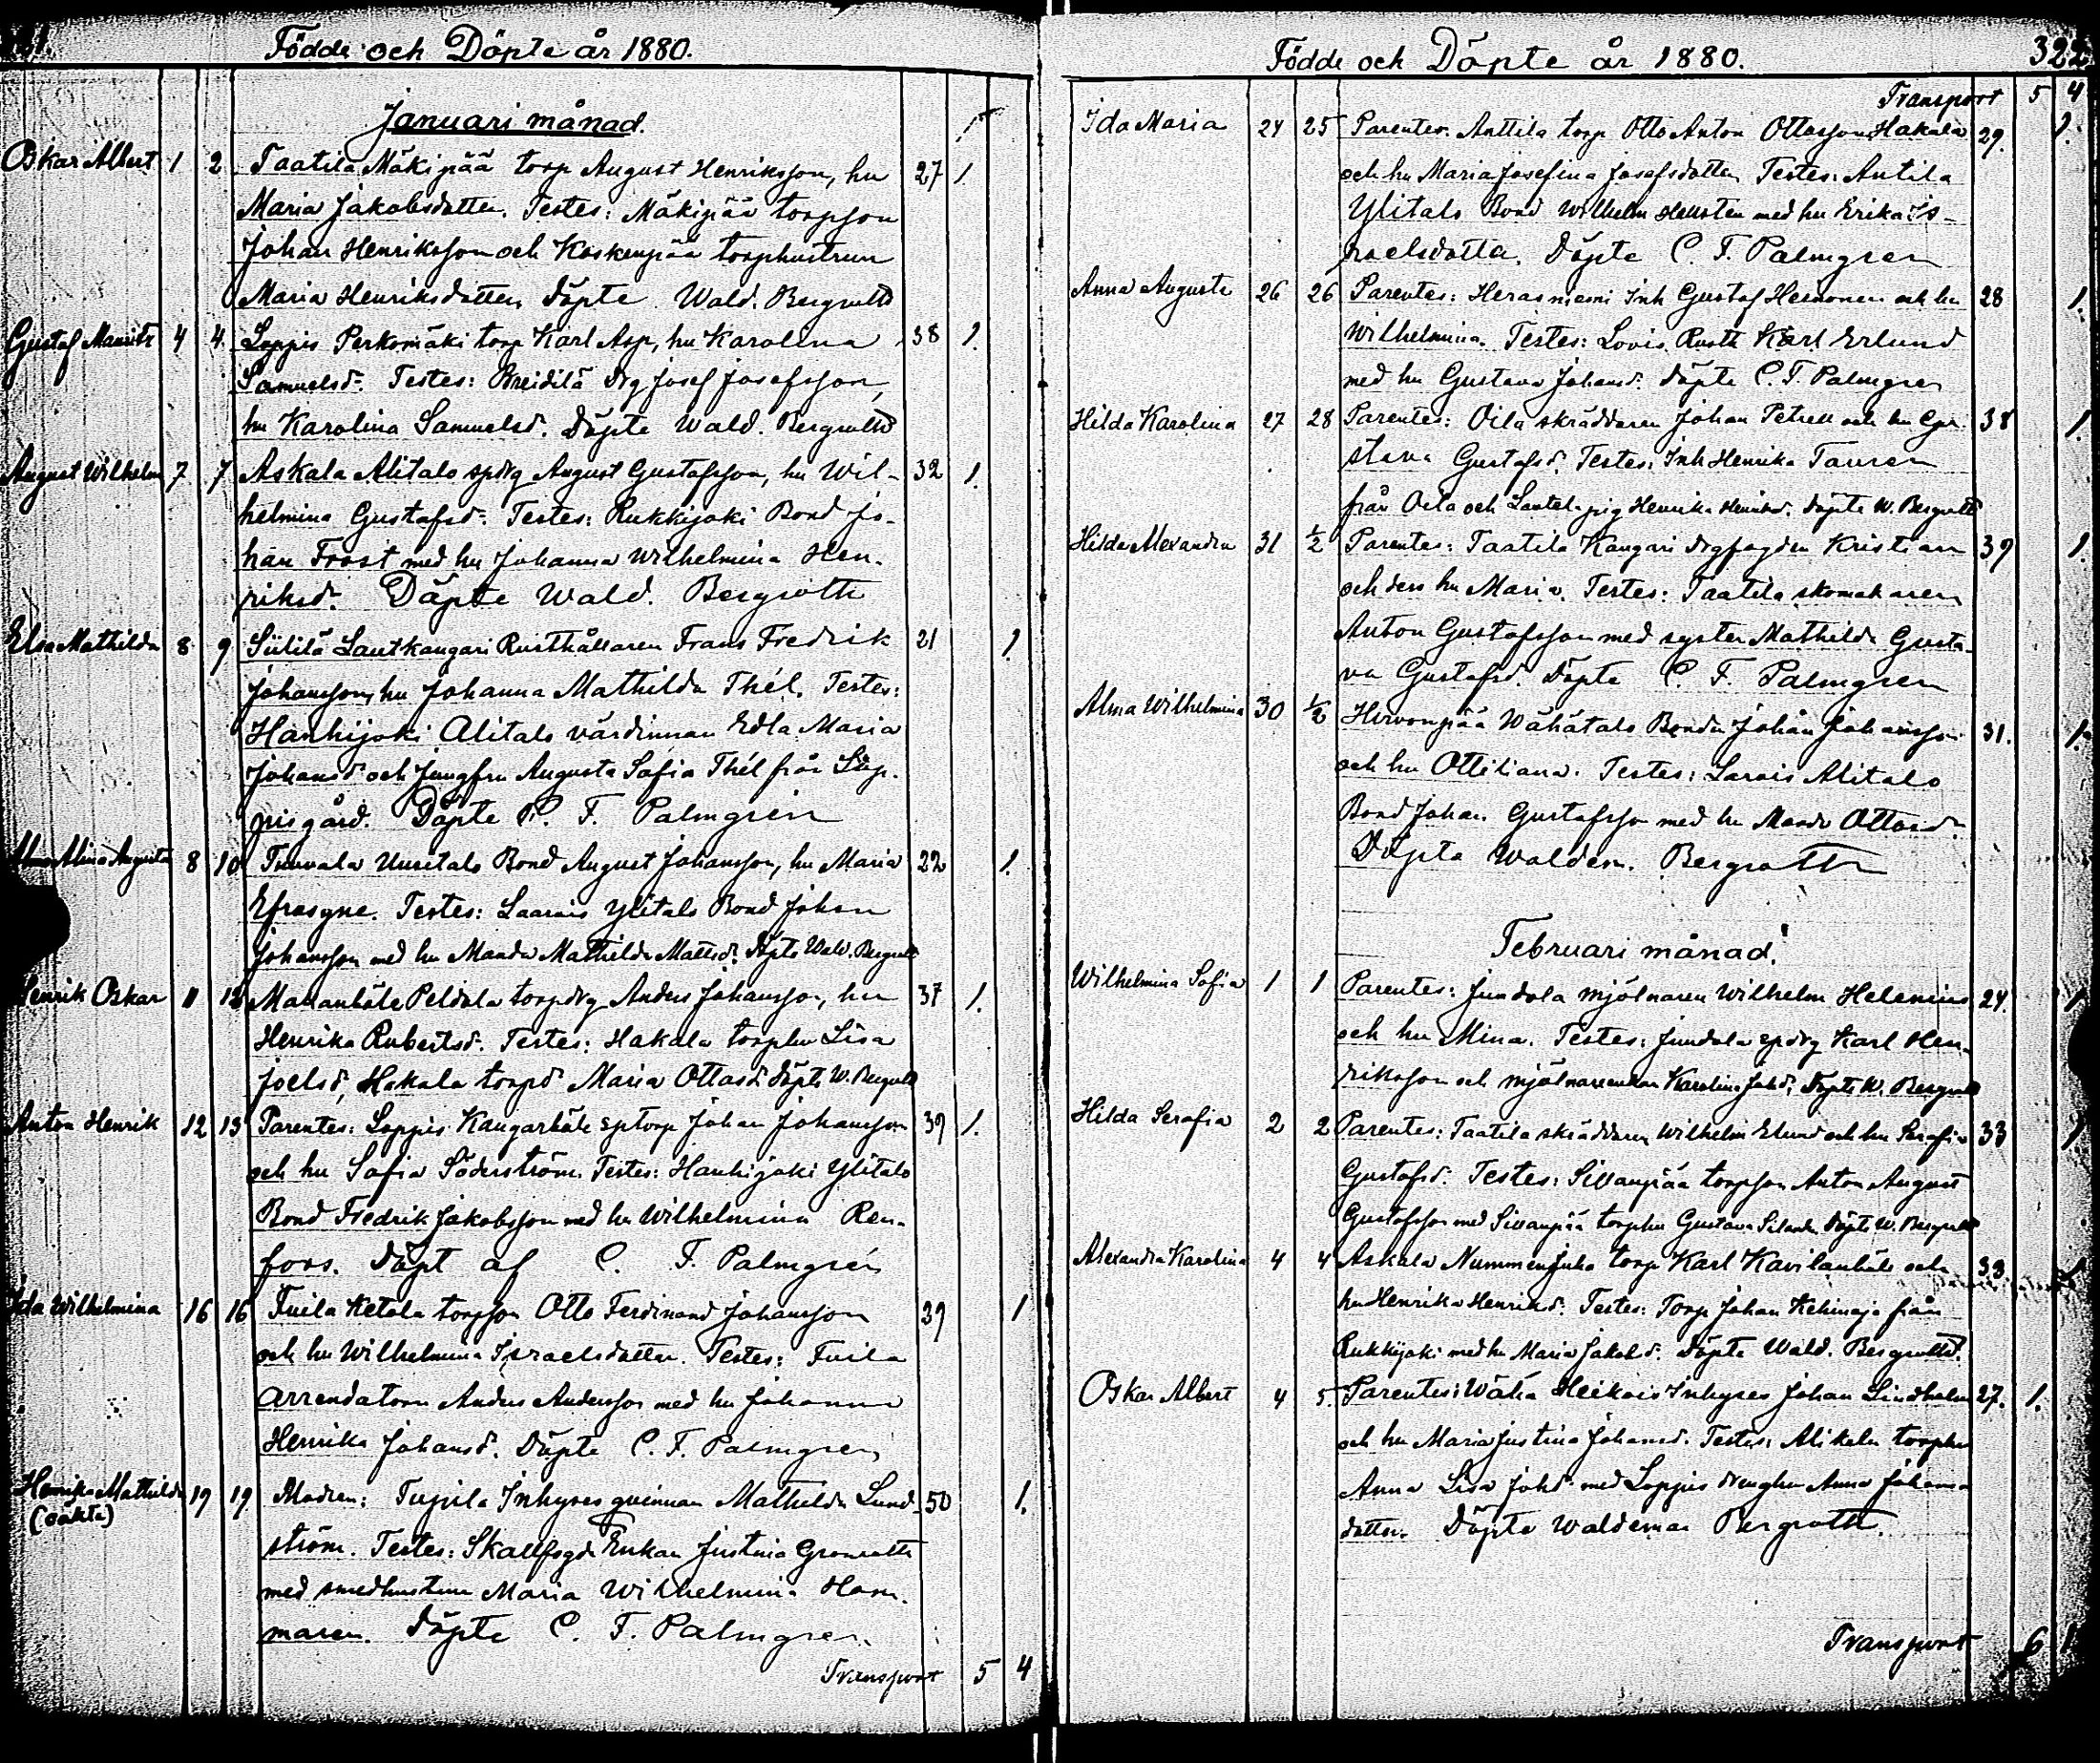 Födde och Döpte år 1880.
Januari månad.
Oskar Albert 1 2 Taatila Mäkipää torp August Henriksson, hu 27 1.
Maria Jakobsdotter. Testes: Mäkipää torpson
Johan Henriksson och Koskenpää torphustrun
Maria Henriksdotter, Döpte Wald. Bergroth
Gustaf Mauritz 4 4. Loppis Perkomäki torp Karl Asp, hu Karolina 38 1.
Samuelsd. Testes: Breidilä drg Josef Josefsson,
hu Karolina Samuelsd. Döpte Wald. Bergroth
August Wilhelm 7 7 Askala Alitalo spdrg August Gustafsson, hu Wil- 32 1.
helmina Gustafsd. Testes: Rukkijoki Bond Jo-
han Frost med hu Johanna Wilhelmina Hen-
riksd. Döpte Wald. Bergroth
Elsa Mathilda 8 9 Siitilä Lautkangari Rusthållaren Frans Fredrik 21 1.
Johansson, hu Johanna Mathilda Thél. Testes:
Hanhijoki Alitalo värdinnan Edla Maria
Johansd. och Jungfru Augusta Sofia Thél från
gård. Döpte C. F. Palmgrén
Alina Augusta 8 10 Tuuvala Uusitalo Bond August Johansson, hu Maria 22 1.
Efrasyne. Testes: Laarais Ylitalo Bond Johan
Johansson med hu Manda Mathilda Mattsd. Döpte Wald. Bergroth
Henrik Oskar 11 12 Mananböle Peldola torpdrg Anders Johansson, hu 37 1.
Henrika Robertsd. Testes: Hakala torphu Lisa
Joelsd, Hakala torpd Maria Ottosd. Döpte W. Bergroth
Anton Henrik 12 13 Parentes: Loppis Kangarböle sptorp Johan Johansson 39 1.
och hu Sofia Söderström. Testes: Hanhijoki Ylitalo
Bond Fredrik Jakobsson med hu Wilhelmina Ren-
fors. Döpt af C. F. Palmgrén
Ida Wilhelmina 16 16 Tuila Ketola torpson Otto Ferdinand Johansson 39 1
och hu Wilhelmina Israelsdotter. Testes: Tuila
arrendatorn Anders Andersson med hu Johanna
Henrika Johansd. Döpte C. F. Palmgren
Henrika Mathilda 19 19 Modren: Inhyses qvinnan Mathilda Lund- 50 1.
(oäkta)
ström. Testes: Enkan Justina
med smedhustrun Maria Wilhelmina Ham-
maren. Döpte C. F. Palmgren.
Transport 5 4
Födde och Döpte år 1880. 322
Transport 5 4
Ida Maria 24 25 Parentes: Anttila torp Otto Anton Ottosson Hakala 29. 1.
och hu Maria Josefina Josefsdotter Testes: Antila
Ylitalo Bond Wilhelm Hellsten med hu Erika Is-
raelsdotter. Döpte C. F. Palmgren
Anna Augusta 26 26 Parentes: Herasniemi Inh Gustaf Heinonen och hu 28 1.
Wilhelmina. Testes: Lovis Rusth Karl Erlund
med hu Gustava Johansd. Döpte C. F. Palmgren
Hilda Karolina 27 28 Parentes: Oila skräddaren Johan Petrell och hu Gu- 38 1.
stava Gustafsd. Testes: Inh Henrika Tauren
från Oila och pig Henrika Henriksd. Döpte W. Bergroth
Hilda Alexandra 31 1/2 Parentes: Taatila Kangari drgfogden Kristian 39 1.
och dess hu Maria. Testes: Taatila skomakaren
Anton Gustafsson med syster Mathilda Gusta-
va Gustafsd. Döpte C. F. Palmgren
Alma Wilhelmina 30 1/2 Hirvonpää Wähätalo Bonden Johan Johansson 31. 1.
och hu Ottiliana. Testes: Larais Alitalo
Bond Johan Gustafsson med hu Manda Ottosd.
Döpte Waldem. Bergroth
Februari månad.
Wilhelmina Sofia 1 1 Parentes: Jundola mjölnaren Wilhelm Helenius 24. 1
och hu Mina. Testes: Jundola spdrg Karl Hen-
riksson och mjölnareenkan Karolina Johd. Döpte W. Bergroth
Hilda Serafia 2 2 Parentes: Taatila skräddaren Wilhelm Elund och hu Serafia 33 1
Gustafsd. Testes: Sillanpää torpson Anton August
Gustafsson med Sillanpää torphu Gustava Silander. Döpte W. Bergroth
Alexandra Karolina 4 4 Askala Nummenjuha torp Karl Kavilanböle och 38. 1
hu Henrika Henriksd. Testes: Torp Johan från
Rukkijoki med hu Maria Jakobsd. Döpte Wald. Bergroth.
Oskar Albert 4 5. Parentes: Wähä Heikois Inhyses Johan Lindholm 27. 1.
och hu Maria Justina Johansd. Testes: Alikelu torphu
Anna Lisa Johd med Loppis drenghu Anna Johans-
dotter. Döpte Waldemar Bergroth.
Transport 6